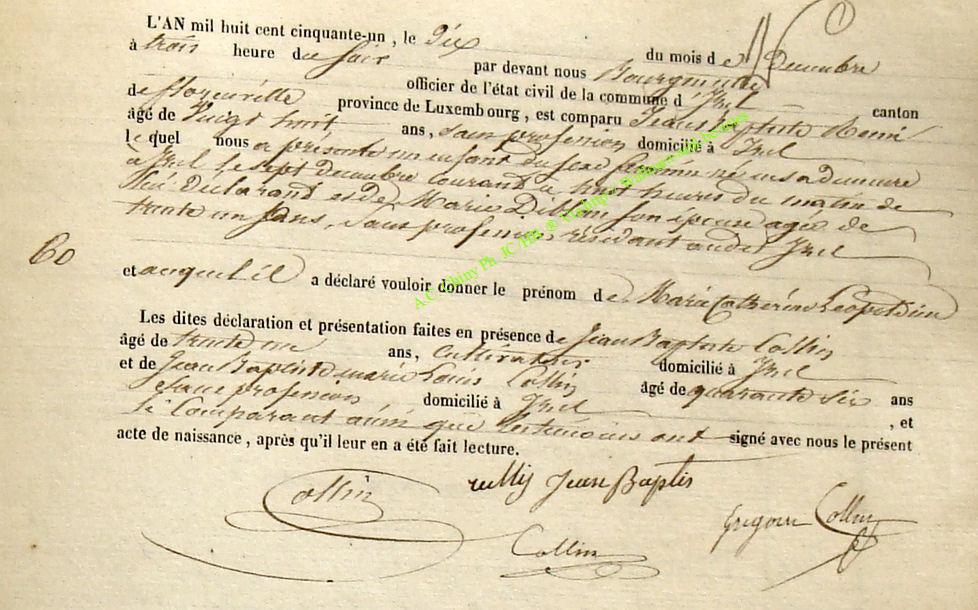 L'AN mil huit cent cinquante-un, le Dix du mois de Decembre
à trois heure du soir par devant nous Bourgmestre
officier de l'état civil de la commune d'Izel canton
de Florenville province de Luxembourg, est comparu Jean Baptiste
âgé de Vingt huit ans, sans profession domicilié à Izel
le quel nous a présenté un enfant du sexe feminin né en sa demeure
à Izel le sept Decembre courant à huit heures du matin de
lui Declarant et de Marie son epouse agée de
trente un ans, sans profession, résidant audit Izel
60
et auquel il a déclaré vouloir donner le prénom de Marie Catherine Leopoldine
Les dites déclaration et présentation faites en présence de Jean Baptiste Collin
âgé de trente ans, cultivateur domicilié à Izel
et de Jean Baptiste marie Louis Collin âgé de quarante six ans
sans profession domicilié à Izel, et
le Comparant ainsi que les temoins ont signé avec nous le présent
acte de naissance, après qu'il leur en a été fait lecture.
Collin Jean Baptis
Collin Gregoire Collin